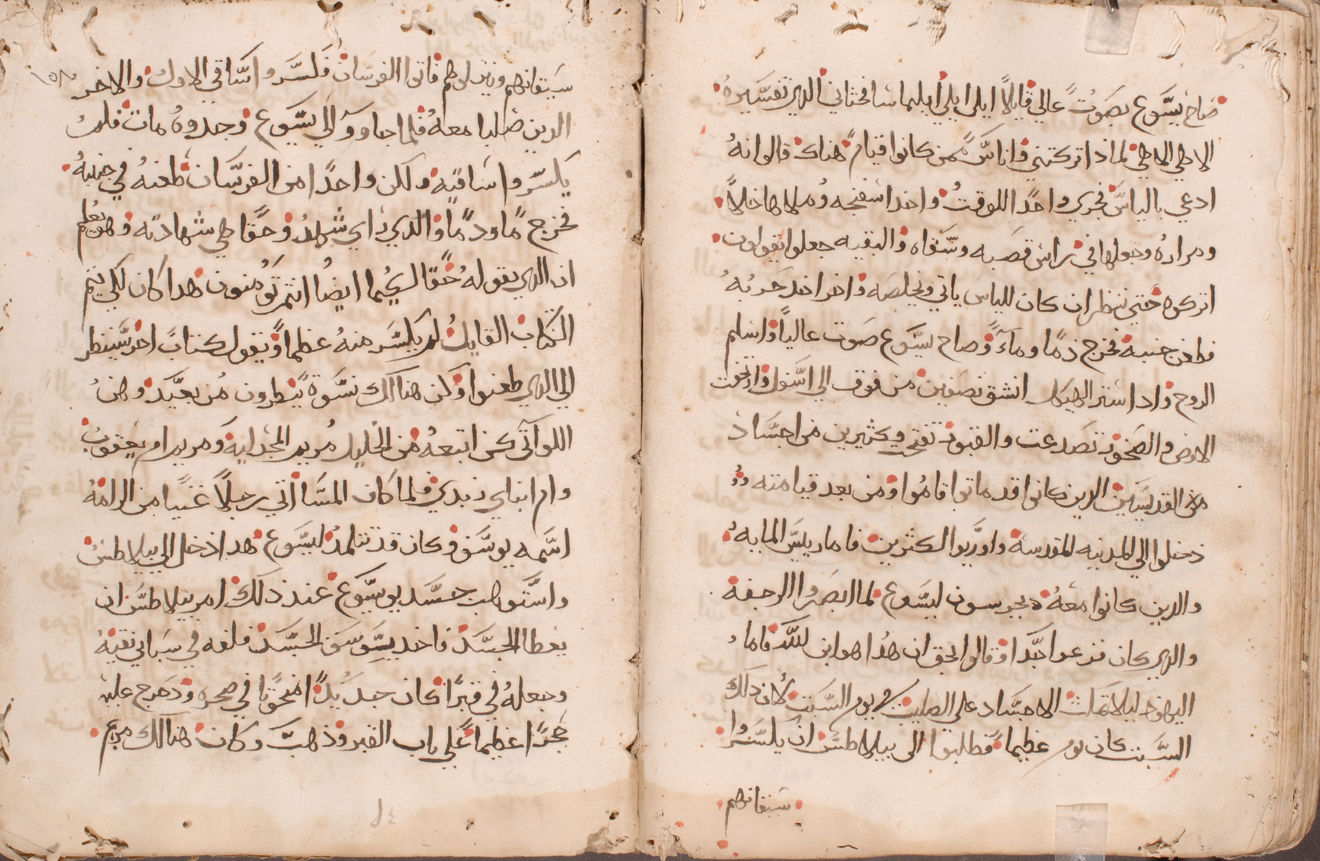 صاح يسوع بصوت عالى قايلاً ايلي ايلي ايليما شافختاني الدي تفسيره
الاهي الاهي لماذا تركتني واناسً ممن كانوا قيام هناك قالوا انه
ادعي بالياس فجرى واحدًا للوقت واخد اسفنجه وملاها خلاً
ومراره وجعلها في راس قصبه وسقاه والبقيه جعلوا يقولون
اتركوه حتى ننظر ان كان للياس ياتي ويخلصه واخر اخد حربه
وطعن جنبه فخرج دمًا وماءً وصاح يسوع صوت عالياً واسلم
الروح وادا ستر الهيكل انشق نصفين من فوق الى اسفل وارتجفت
الارض والصخور تصدعت والقبور تفتحو وكثيرين من اجساد
القديسين الدين كانوا قد ماتوا قاموا ومن بعد قيامته
دخلوا الى المدينه المقدسه واوريوا لكثرين فاما ريس المايه
والدين كانوا معه يحرسون ليسوع لما ابصروا الرجفه
والدي كان فزعوا جدًا وقالوا بالحق ان هدا هو ابن الله فاما
اليهود ليلا تثبت الاجساد على الصليب يوم السبت لان دلك
السبت كان يوم عظيما فطلبوا الى بيلاطس ان يكسروا
سيقانهم
سيقانهم وينزلوهم فاتوا الفرسان فكسروا ساقي الاول والاخر
الدين صلبا معه فلما جاوو الى يسوع وجدوه مات فلم
يكسروا ساقيه ولكن واحدًا من الفرسان طعنه في جنبه
فخرج مًا ودمًا والدي راي شهد وحقًا هي شهادته وهو يعلم
ان الدي يقوله حقًا لكيما ايضًا انتم تومنون هدا كان لكي يتم
الكتاب القايل لم يكسر منه عظماً ويقول كتابً اخر سينظر
الى الدي طعنوا وكن هنالك نسوة ينظرون من بعيد وهن
اللواتي كن اتبعه من الجليل مريم المجدلية ومريم ام يعقوب
وام ابناي زبدي ولما كان المسا اتي رجلاً غنيًا من الرامه
اسمه يوسف وكان قد تتلمد ليسوع هدا دخل الى بيلاطس
واستوهب جسد يسوع عند دلك امر بيلاطس ان
يعطا الجسد فاخد يوسف الجسد فلفه في سباني نقيه
وجعله في قبرًا كان جديدًا منحوتًا في صخره ودحرج عليه
حجرًا عظيما على باب القبر ودهب وكان هنالك مريم